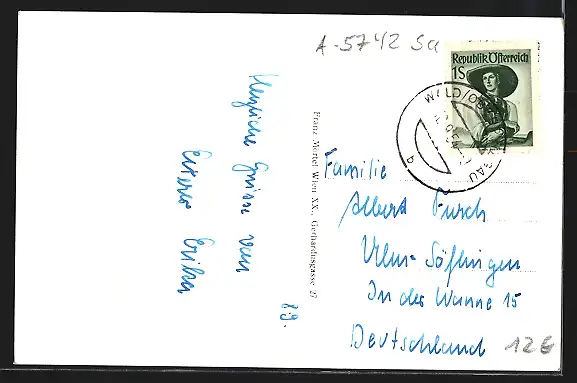 A-5742 Sa
Republik Österreich
1S
WALD/OBERPINZGAU
b
Herzliche Grüsse von
Eurer Erika
89.
Franz Mörtel Wien XX., Gerhardusgasse 27
Familie
Albert Fusch
Ulm-Söflingen
In der Wanne 15
Deutschland
12€